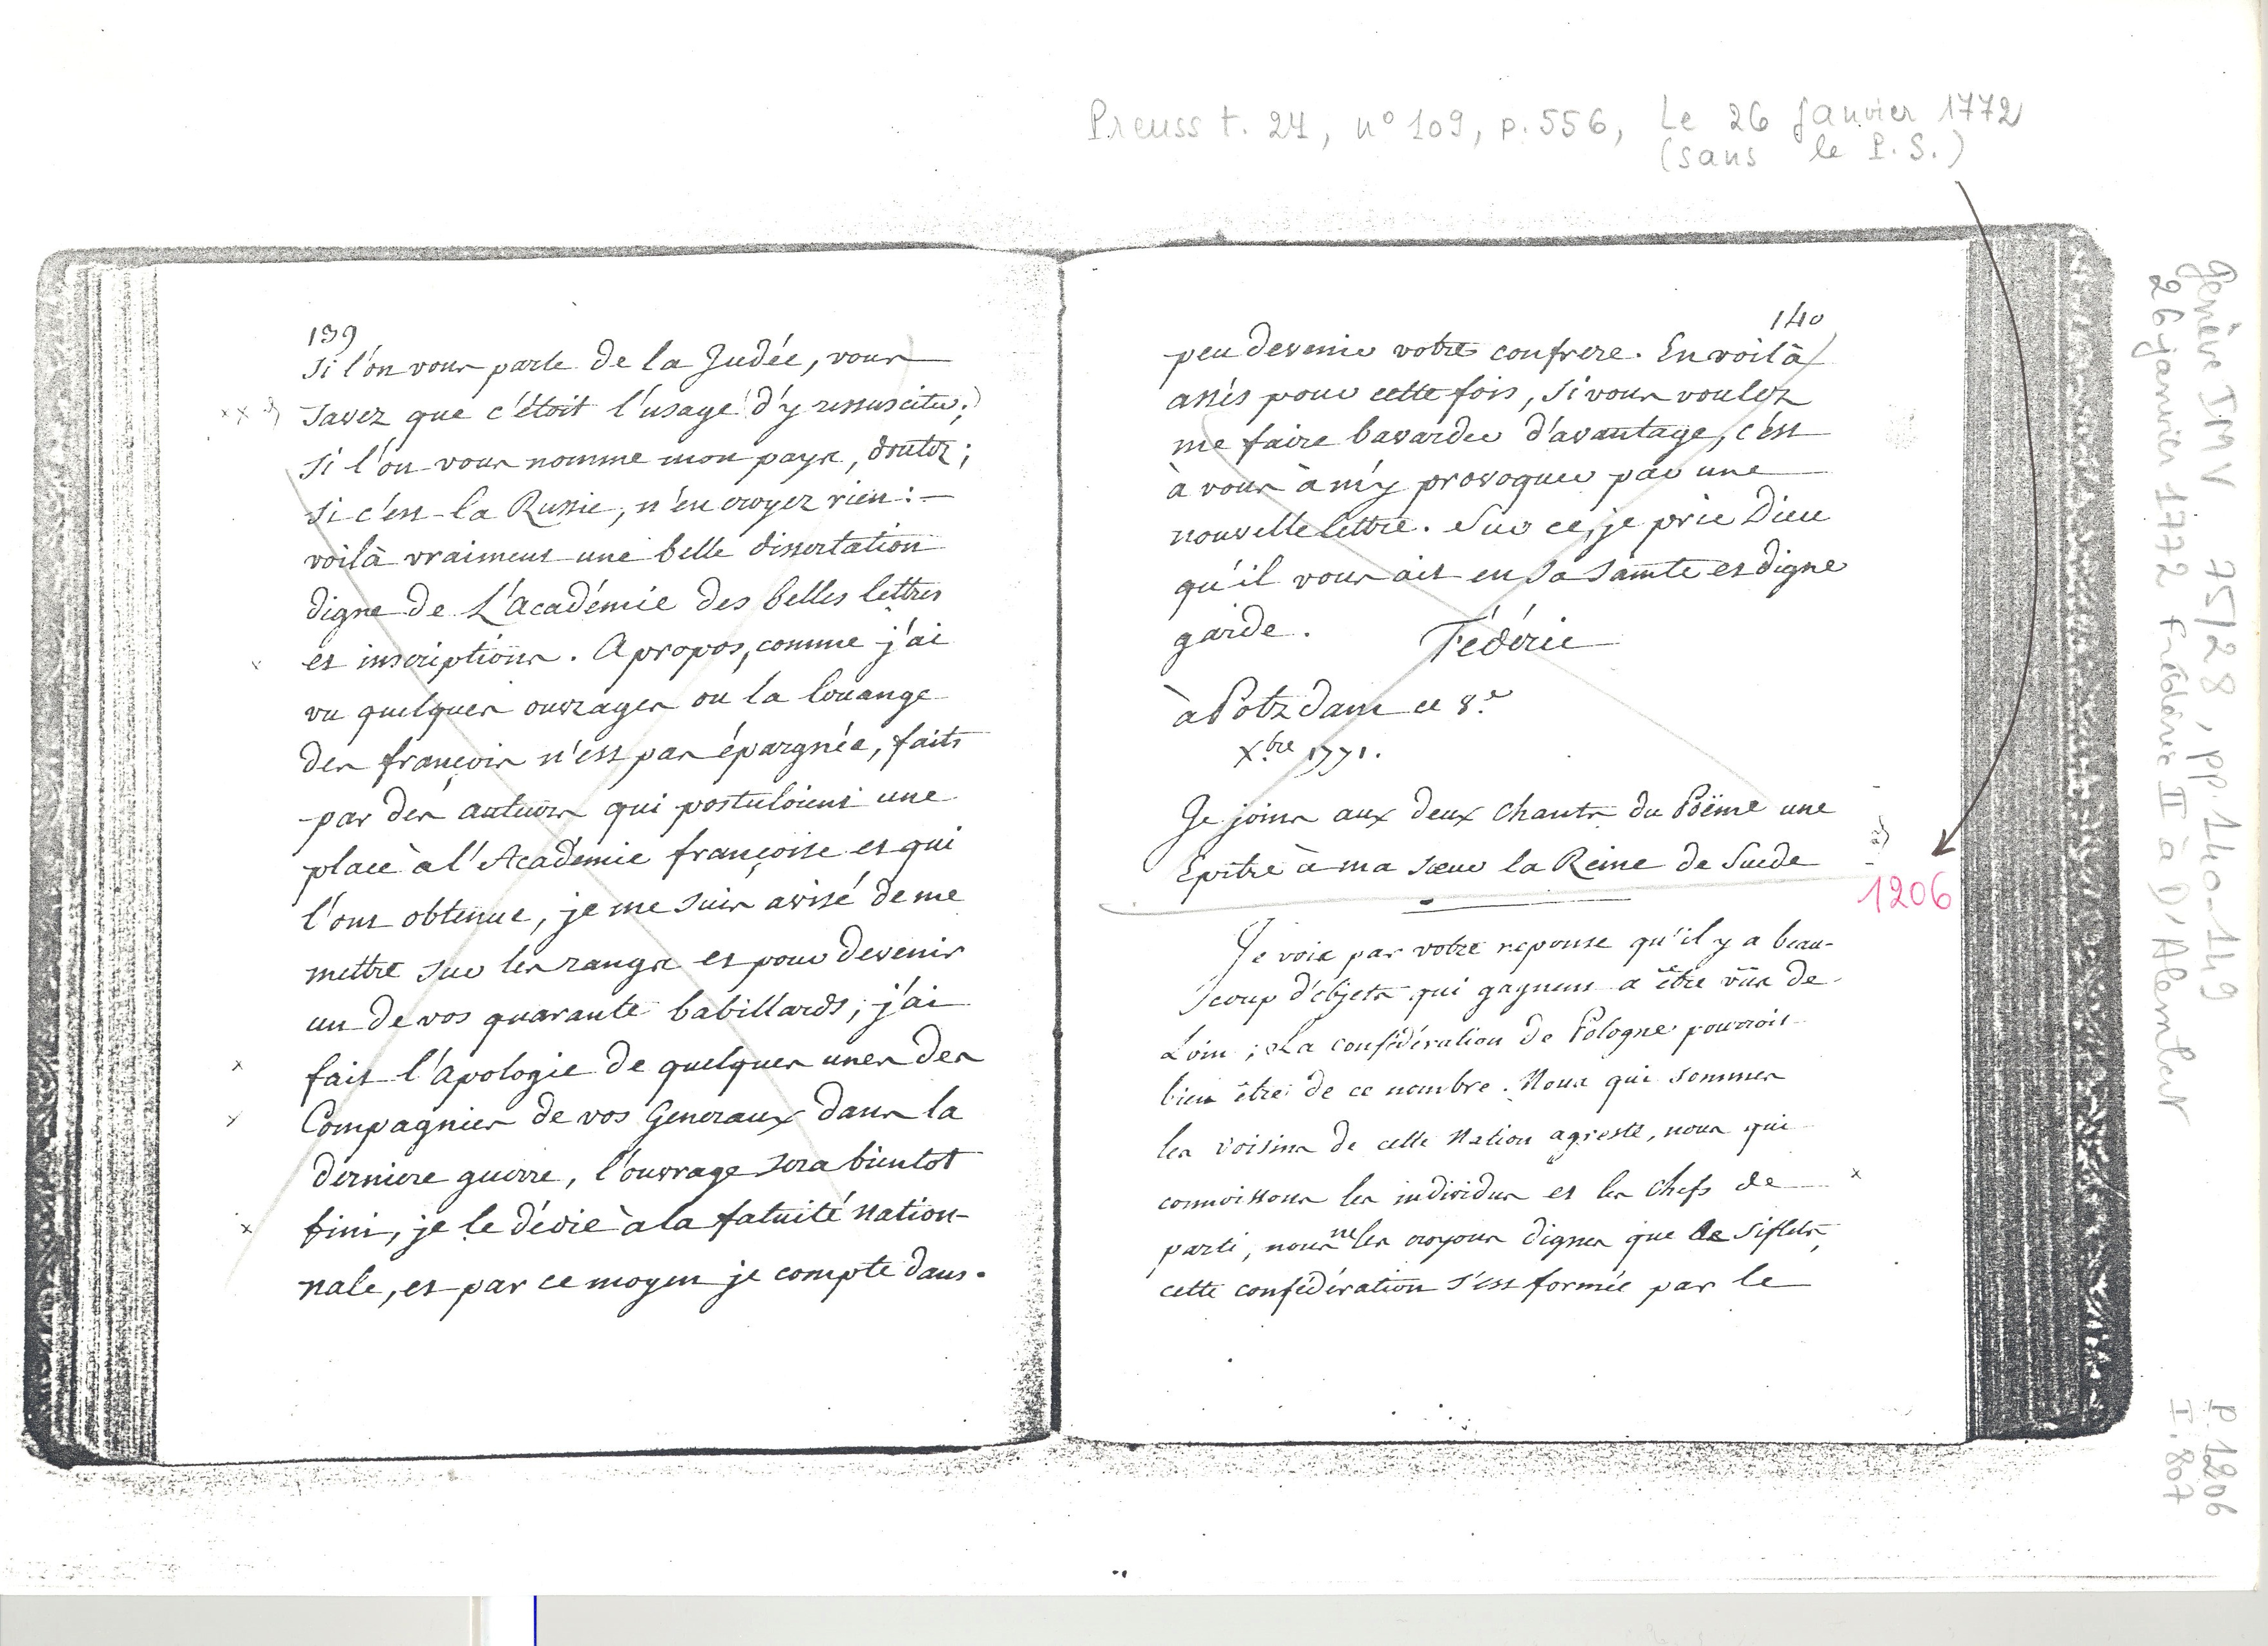 Preuss t. 24, n° 109, p. 556, Le 26 Janvier 1772
(sans le P.S.)
139
Si l'on vous parle de la Judée, vous
savez que c'étoit l'usage d'y ressusciter;
si l'on vous nomme mon pays, doutez;
si c'est la Russie, n'en croyez rien:
voilà vraiment une belle dissertation
digne de L'académie des belles lettres
et inscriptions. Apropos, comme j'ai
vu quelques ouvrages ou la louange
des françois n'est pas épargnée, faits
par des auteurs qui postuloient une
place à l'Académie françoise et qui
l'ont obtenue, je me suis avisé de me
mettre sur les rangs et pour devenir
un de vos quarante babillards; j'ai
fait l'Apologie de quelques unes des
Compagnies de vos Generaux dans la
derniere guerre, l'ouvrage sera bientot
fini, je le dédie à la fatuité nation-
nale, et par ce moyen je compte dans
140
peu devenir votre confrere. En voilà
assés pour cette fois, si vous voulez
me faire bavarder d'avantage, c'est
à vous à m'y provoquer par une
nouvelle lettre. Sur ce, je prie Dieu
qu'il vous ait en sa sainte et digne
garde. Fédéric
à Potzdam ce 8.e
Xbre 1771.
Je joins aux deux chants du Poëme une
Epitre à ma sœur la Reine de Suede
1206
Je vois par votre reponse qu'il y a beau-
coup d'objets qui gagnent a être vûs de
Loin; La confédération de Pologne pourroit
bien être de ce nombre. Nous qui sommes
les voisins de cette Nation agreste, nous qui
connoissons les individus et les chefs de
parti, nous ne les croyons dignes que de siflets,
cette confédération s'est formée par le
Genève IMV 75/28, pp. 140-149
26 janvier 1772 Frédéric II à D'Alembert
P. 1206
I. 807